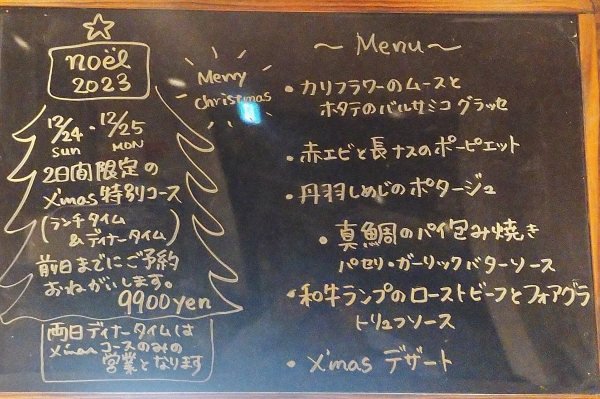 noël
2023
12/24 · 12/25
sun MON
2日間限定の
X'mas 特別コース
(ランチタイム
&ディナータイム)
前日までにご予約
おねがいします。
9900yen
両日ディナータイムは
X'masコースのみの
営業となります
Merry
christmas
～ Menu ～
・カリフラワーのムースと
ホタテのバルサミコグラッセ
・赤エビと長ナスのポーピエット
・丹羽しめじのポタージュ
・真鯛のパイ包み焼き
パセリ・ガーリックバターソース
・和牛ランプのローストビーフとフォアグラ
トリュフソース
・X'mas デザート